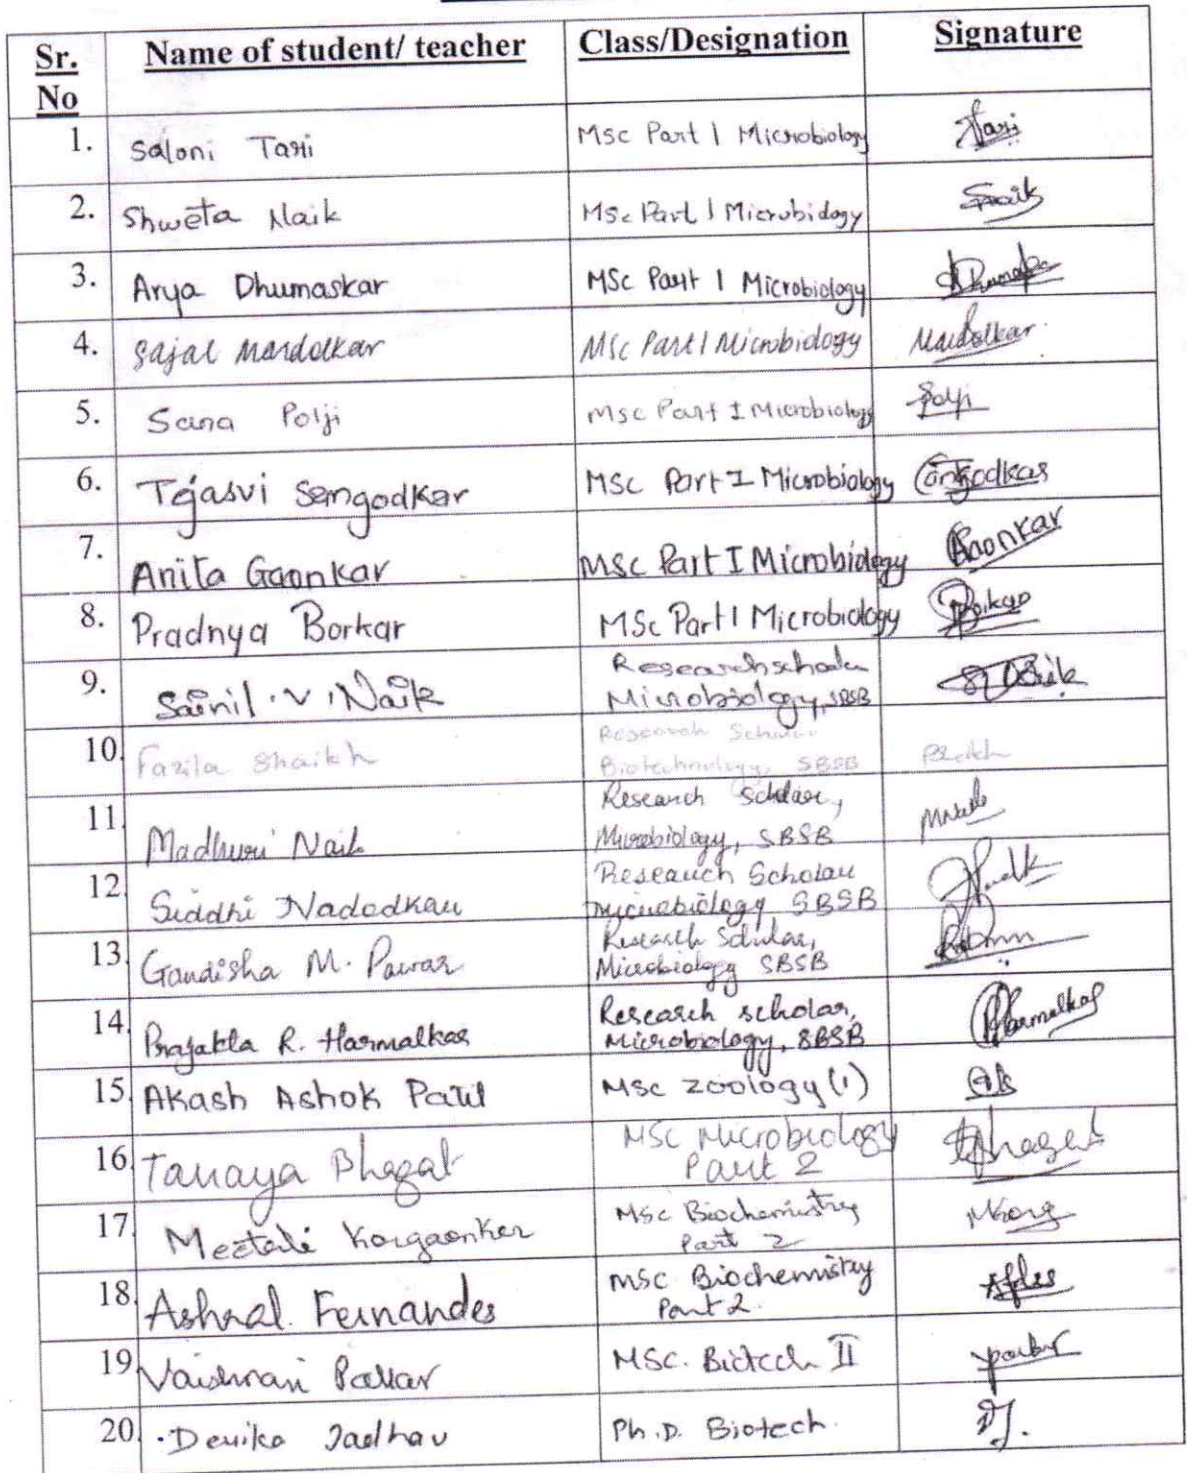 Sr. No Name of student/ teacher Class/Designation Signature
1. Saloni Tari MSc Part 1 Microbiology Tari
2. Shweta Naik MSc Part 1 Microbiology SNaik
3. Arya Dhumaskar MSc Part 1 Microbiology
4. Sajal Mardolkar MSc Part 1 Microbiology Mardolkar
5. Sana Polji MSc Part I Microbiology Polji
6. Tejasvi Sangodkar MSc Part I Microbiology Sangodkar
7. Anita Gaonkar MSc Part I Microbiology Gaonkar
8. Pradnya Borkar MSc Part 1 Microbiology Borkar
9. Sainil .V. Naik Research scholar
Microbiology, SBSB
10. Fazila Shaikh Research Scholar
Biotechnology, SBSB
11. Madhuri Naik Research Scholar,
Microbiology, SBSB
12. Siddhi Nadodkar Research Scholar
Microbiology, SBSB
13. Gandisha M. Pawar Research Scholar,
Microbiology SBSB
14. Prajakta R. Harmalkar Research scholar,
Microbiology, SBSB Harmalkar
15. Akash Ashok Patil MSc Zoology (1)
16. Tanaya Bhagat MSc Microbiology
Part 2 Bhagat
17. Meetali Korgaonker MSc Biochemistry
Part 2 MKorg
18. Ashral Fernandes MSc Biochemistry
Part 2.
19. Vaishnavi Parkar MSC. Biotech II
20. Devika Jadhav Ph.D. Biotech. DJ.